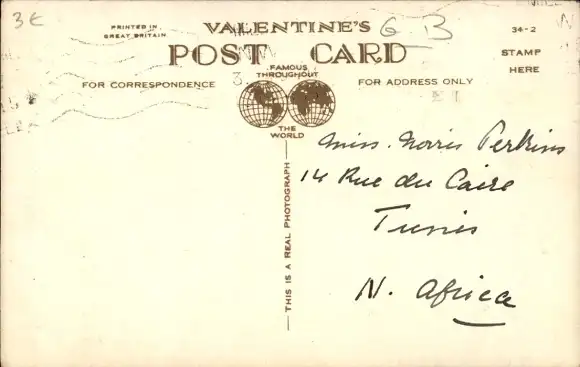 3€
PRINTED IN
GREAT BRITAIN
VALENTINE'S
GB
34-2
POST CARD
STAMP
HERE
FAMOUS
THROUGHOUT
3
FOR CORRESPONDENCE
FOR ADDRESS ONLY
THE
WORLD
THIS IS A REAL PHOTOGRAPH
Miss. Norris Perkins
14 Rue du Caire
Tunis
N. Africa